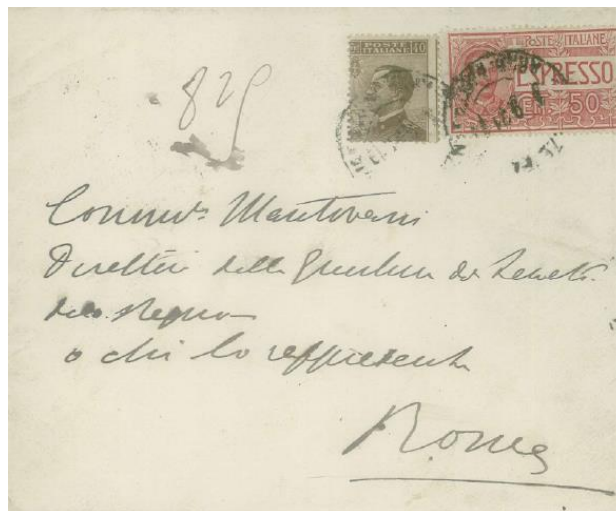 829
POSTE ITALIANE 40
POSTE ITALIANE
ESPRESSO
CENT. 50
Mantovani
Direttore della Questura del Senato
del Regno
o chi lo rappresenta
Roma